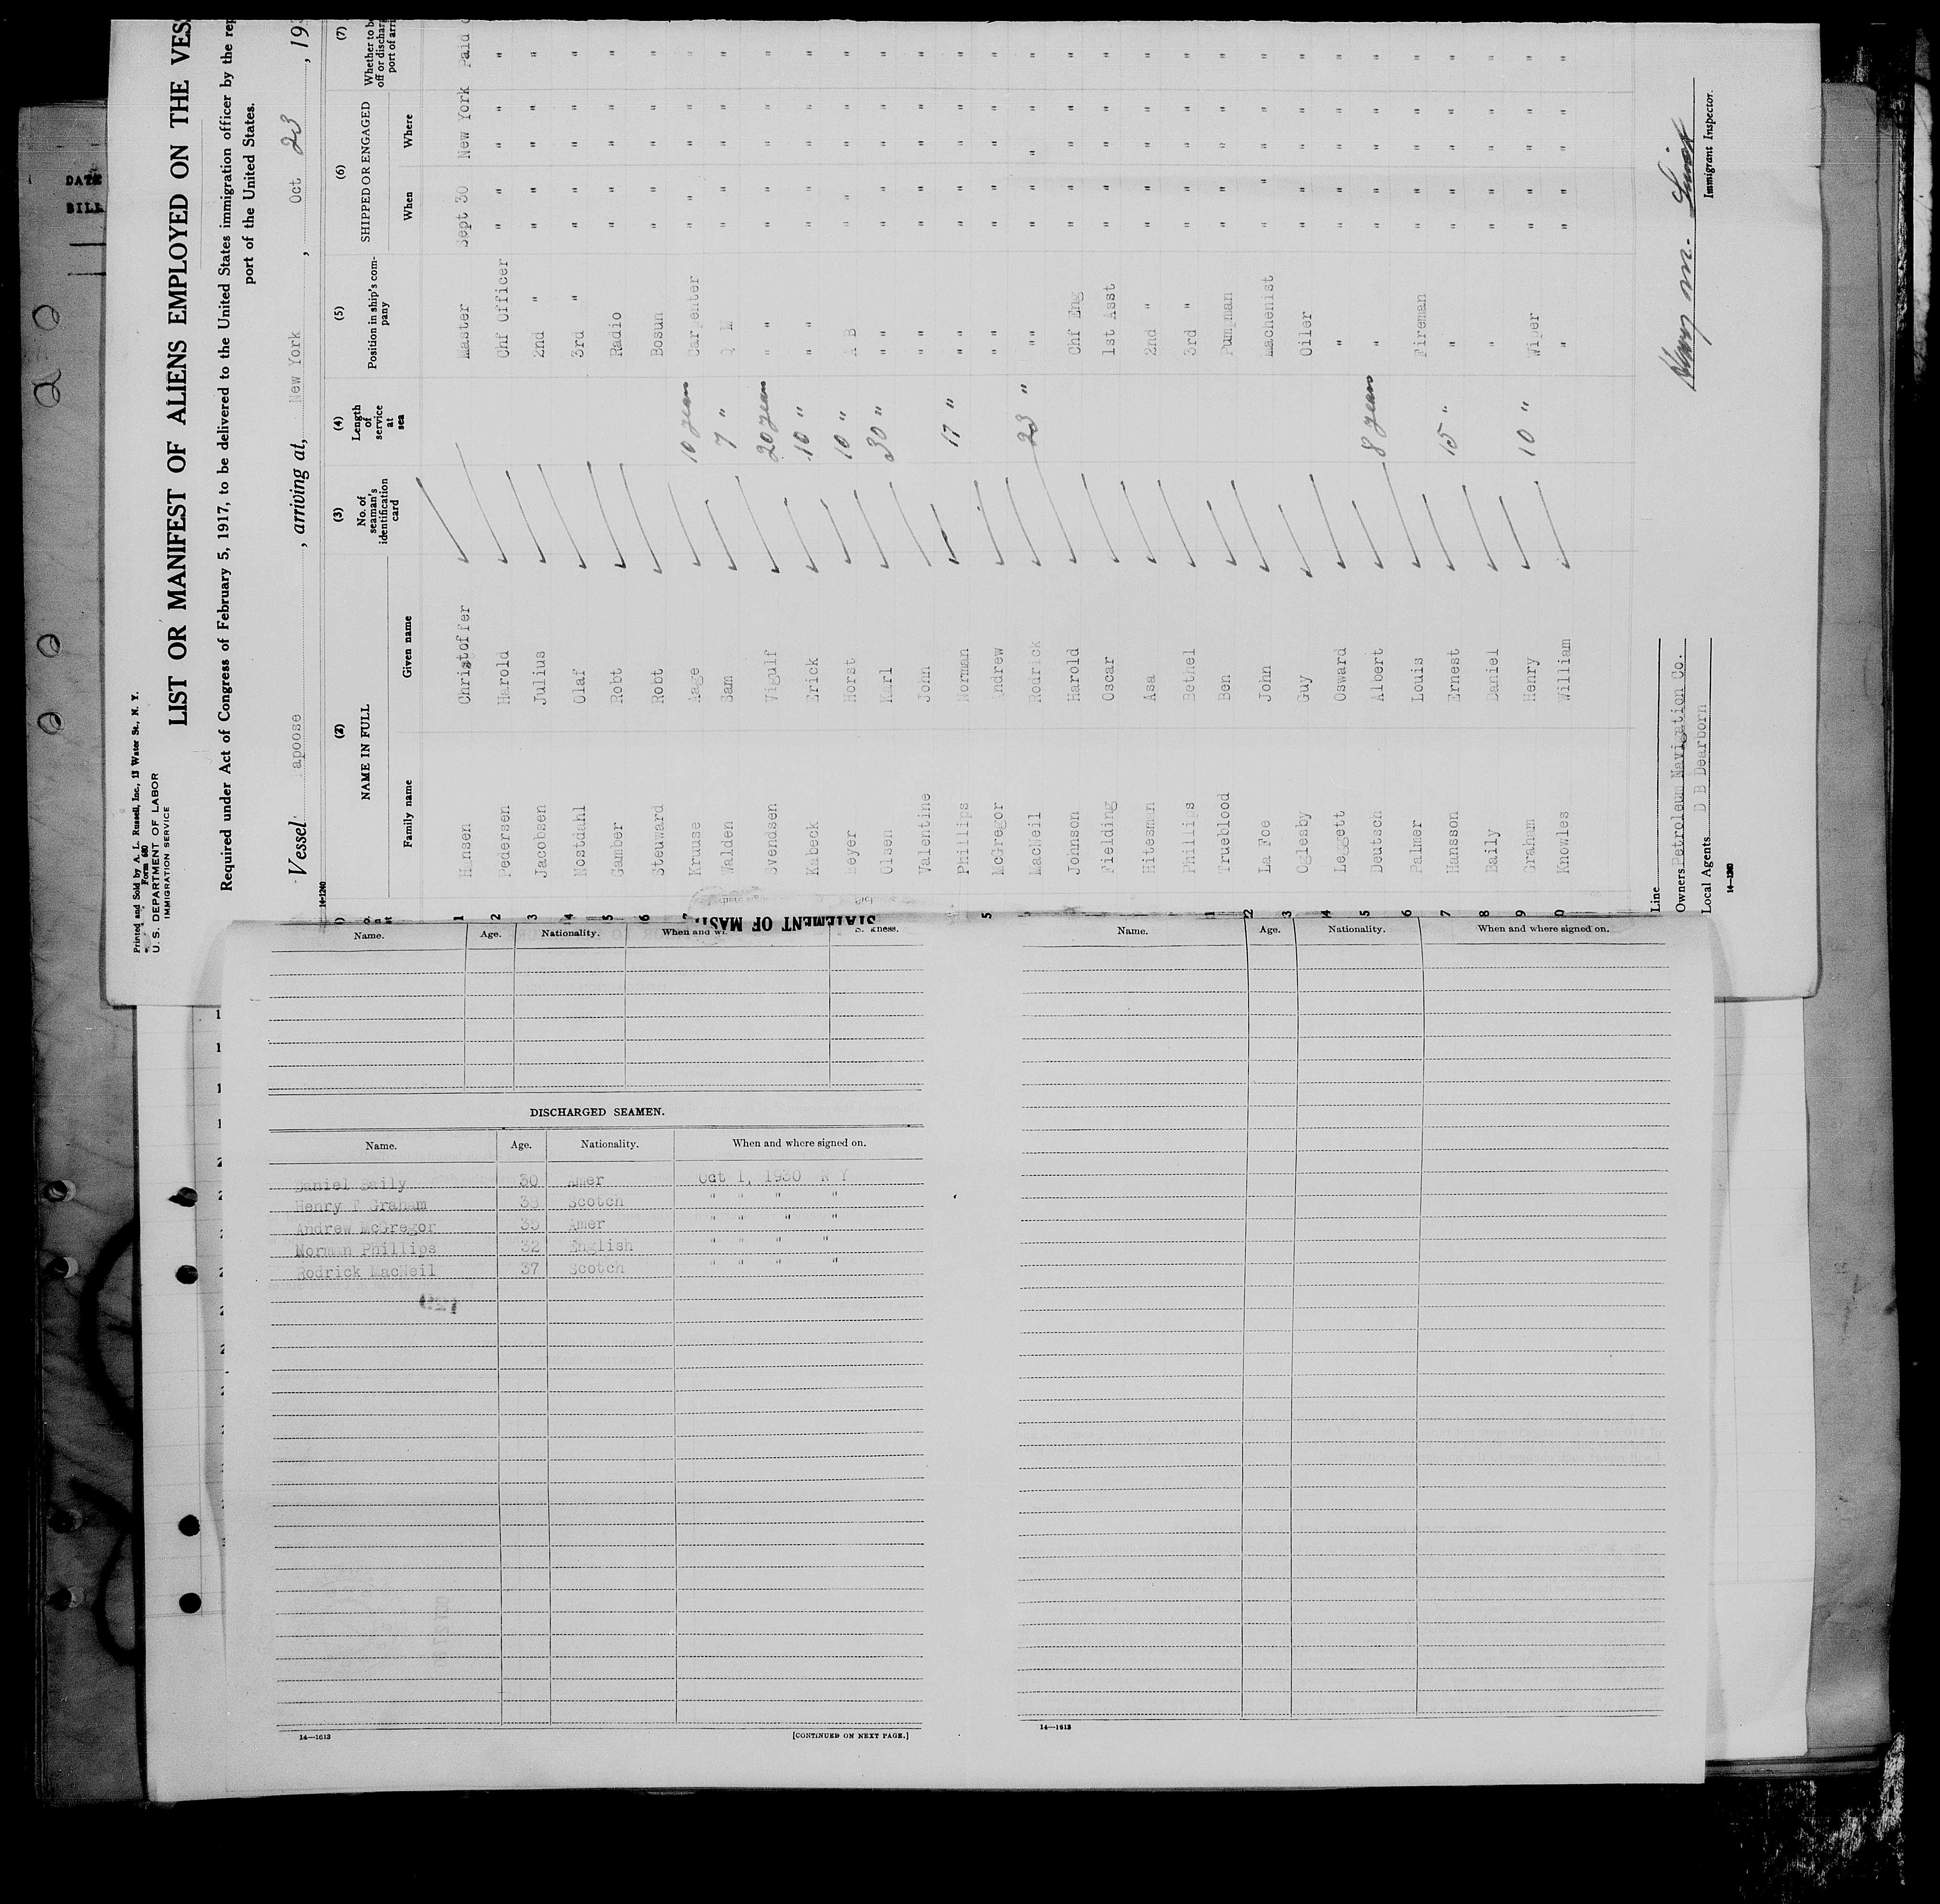 DATE
BILL
Printed and Sold by A. L. Russell, Inc., 13 Water St., N. Y.
Form 680
U. S. DEPARTMENT OF LABOR
IMMIGRATION SERVICE
LIST OR MANIFEST OF ALIENS EMPLOYED ON THE VES
Required under Act of Congress of February 5, 1917, to be delivered to the United States immigration officer by the rep
port of the United States.
Vessel apoose , arriving at, New York , Oct 23 , 193
14-1240
(2) (3) (4) (5) (6) (7)
NAME IN FULL No. of seaman's identification card Length of service at sea Position in ship's company SHIPPED OR ENGAGED Whether to be off or discharg port of arri
Family name Given name When Where
1 Hansen Christoffer Master Sept 30 New York Paid
2 Pedersen Harold Chf Officer " " " " "
3 Jacobsen Julius 2nd " " " " " "
4 Nostdahl Olaf 3rd " " " " " "
5 Gamber Robt Radio " " " " "
6 Steuward Robt Bosun " " " " "
7 Kruuse Aage 10 years Carpenter " " " " "
Walden Sam 7 " Q M " " " " "
Svendsen Vigulf 20 years " " " " " " "
Kabeck Erick 10 " " " " " " "
Beyer Horst 10 " A B " " " " "
Olsen Karl 30 " " " " " " " "
Valentine John " " " " " " "
Phillips Norman 17 " " " " " " " "
5 McGregor Andrew " " " " " " "
MacNeil Rodrick 23 " " " " " " " "
Johnson Harold Chf Eng " " " " "
Fielding Oscar 1st Asst " " " " "
Hitesman Asa 2nd " " " " " "
Phillips Bethel 3rd " " " " " "
1 Trueblood Ben Pumpman " " " " "
2 La Foe John Machenist " " " " "
3 Oglesby Guy Oiler " " " " "
4 Leggett Osward " " " " " "
5 Deutsch Albert 8 years " " " " " "
6 Palmer Louis Fireman " " " " "
7 Hansson Ernest 15 " " " " " " "
8 Baily Daniel " " " " " "
9 Graham Henry 10 " Wiper " " " " "
0 Knowles William " " " " " "
Line
Owners Petroleum Navigation Co.
Local Agents D B Dearborn
14-1240
Immigrant Inspector.
STATEMENT OF MAS
Name. Age. Nationality. When and w kness.
DISCHARGED SEAMEN.
Name. Age. Nationality. When and where signed on.
Daniel Baily 30 Amer Oct 1, 1930 N Y
Henry T Graham 38 Scotch " " " "
Andrew McGregor 35 Amer " " " "
Norman Phillips 32 English " " " "
Rodrick MacNeil 37 Scotch " " " "
14—1613
[CONTINUED ON NEXT PAGE.]
Name. Age. Nationality. When and where signed on.
14—1613